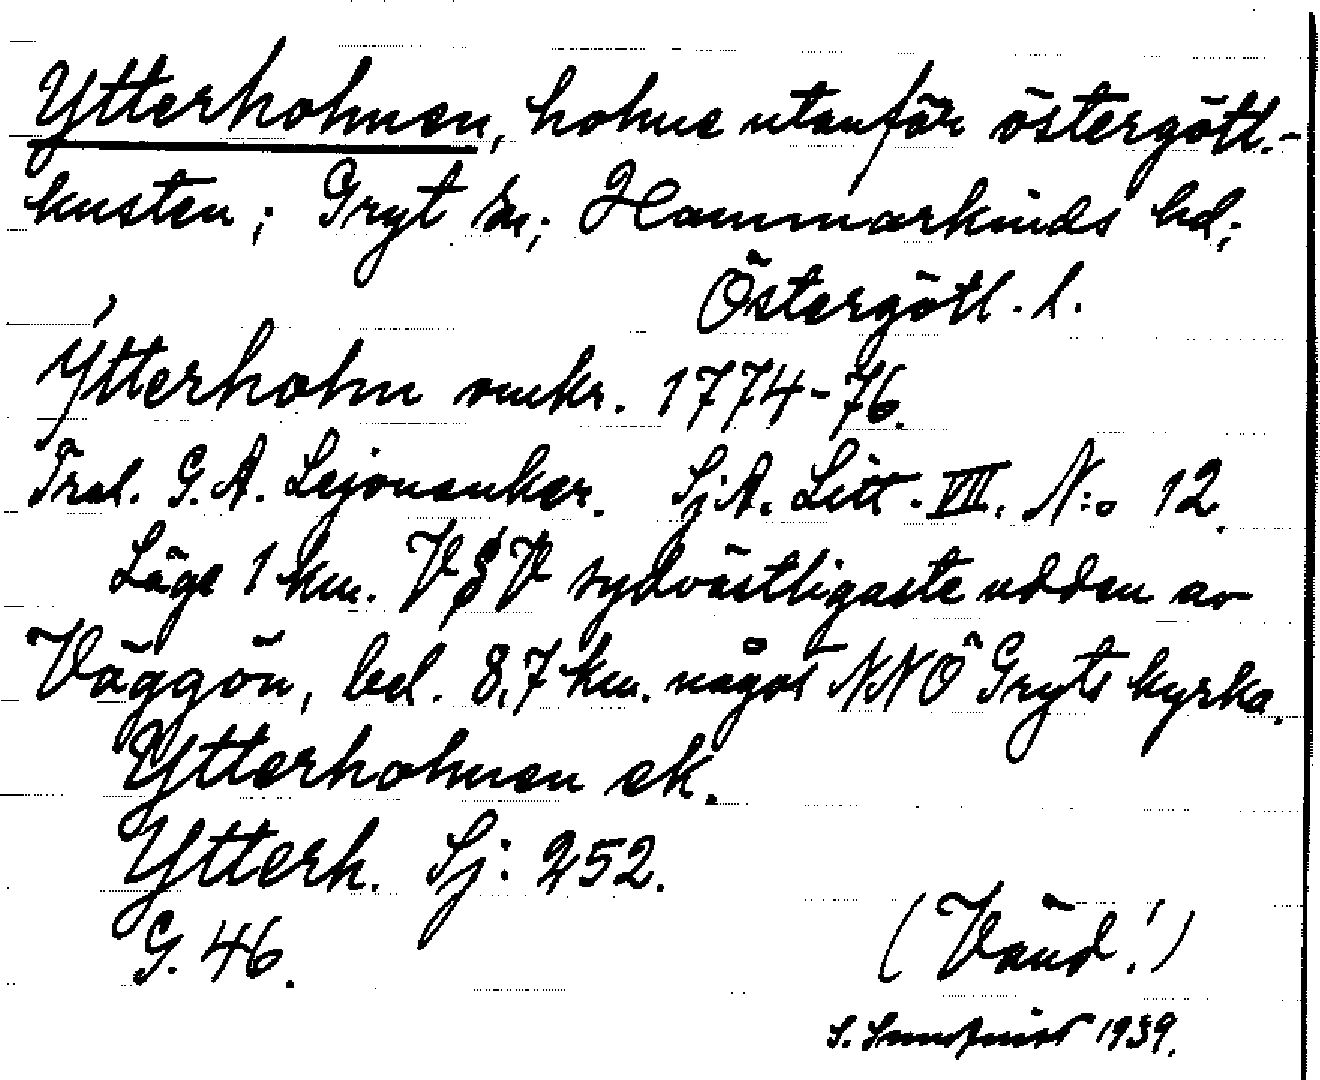 Ytterholmen, holme utanför östergötl.-
kusten; Gryt sn; Hammarkinds hd;
Östergötl. l.
Ytterholm omkr. 1774-76.
Tral. G. A. Lejonanker. Sj. A. Litt. VII. N:o 12.
Läge 1 km. V§V sydvästligaste udden av
Väggön, bel. 8,7 km. något NNÖ Gryts kyrka.
Ytterholmen ek.
Ytterh. Sj: 252.
G. 46.
(Vänd!)
S. 1939.